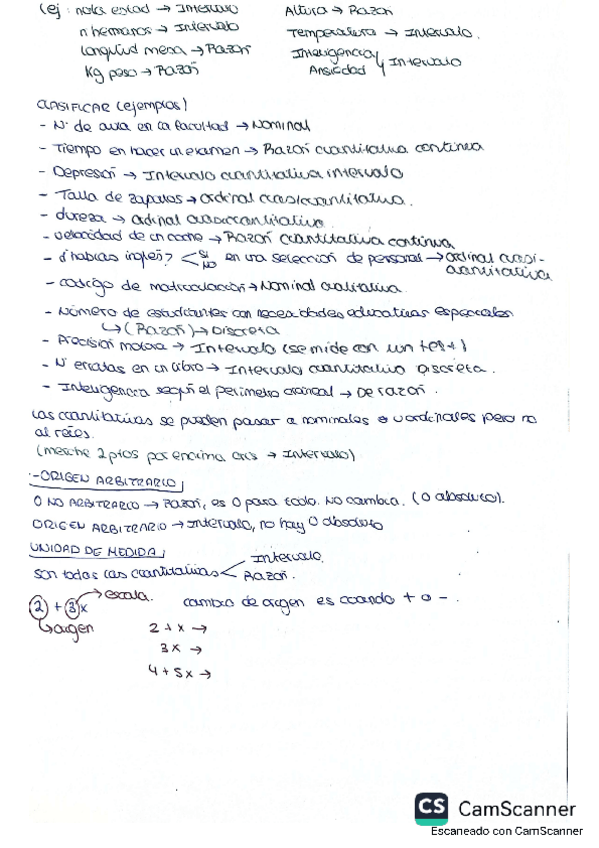 (ej: nota estad → Intervalo
Altura → Razón
n hermanos → Intervalo
Temperatura → Intervalo.
longitud mesa → Razón
Inteligencia
Ansiedad } Intervalo
Kg peso → Razón
CLASIFICAR (ejemplos)
- Nº de aula en la facultad → Nominal
- Tiempo en hacer un examen → Razón cuantitativa continua
- Depresión → Intervalo cuantitativa intervalo
- Talla de zapatos → ordinal cuasicuantitativa.
- dureza → ordinal cuasicuantitativa.
- velocidad de un coche → Razón cuantitativa continua
- ¿hablas inglés? < SI NO en una selección de personal → ordinal cuasi-
cuantitativa
- código de matriculación → Nominal cualitativa.
- Número de estudiantes con necesidades educativas especiales
↳ (Razón) → Discreta
- Precisión motora → Intervalo (se mide con un test)
- Nº erratas en un libro → Intervalo cuantitativo Discreta.
- Inteligencia según el perímetro craneal → De razón.
Las cuantitativas se pueden pasar a nominales o u ordinales pero no
al revés.
(merche 2 ptos por encima cris → Intervalo)
- ORIGEN ARBITRARIO;
O NO ARBITRARIO → Razón, es 0 para todo. No cambia. (0 absoluto).
ORIGEN ARBITRARIO → Intervalo, no hay 0 absoluto
UNIDAD DE MEDIDA;
son todas las cuantitativas < Intervalo.
Razón.
2 + 3x → escala.
cambio de origen es cuando + o - .
↳ origen
2 + x →
3x →
4 + 5x →
CS CamScanner
Escaneado con CamScanner